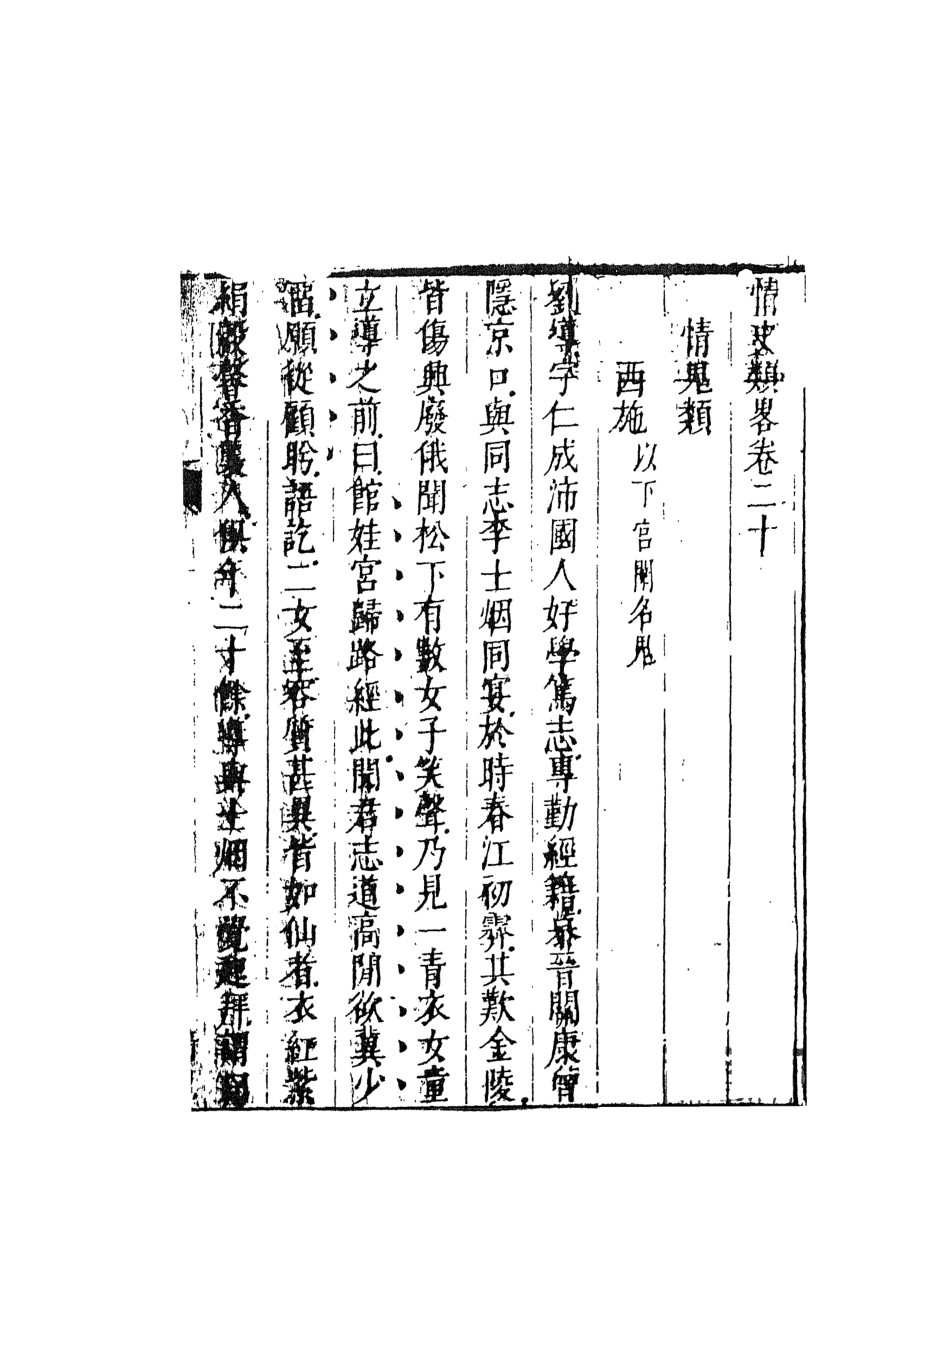 情史類畧卷二十
情鬼類
西施以下宮闈名鬼
劉導字仁成沛國人好學篤志專勤經籍慕晉關康曾
隱京口與同志李士烟同宴於時春江初霽共歎金陵
皆傷興廢俄聞松下有數女子笑聲乃見一青衣女童
立導之前曰館娃宮歸路經此聞君志道高閒欲冀少
留願從顧盼語訖二女至容質甚異皆如仙者衣紅紫
絹縠馨香襲人俱年二十餘導與士烟不覺起拜謂